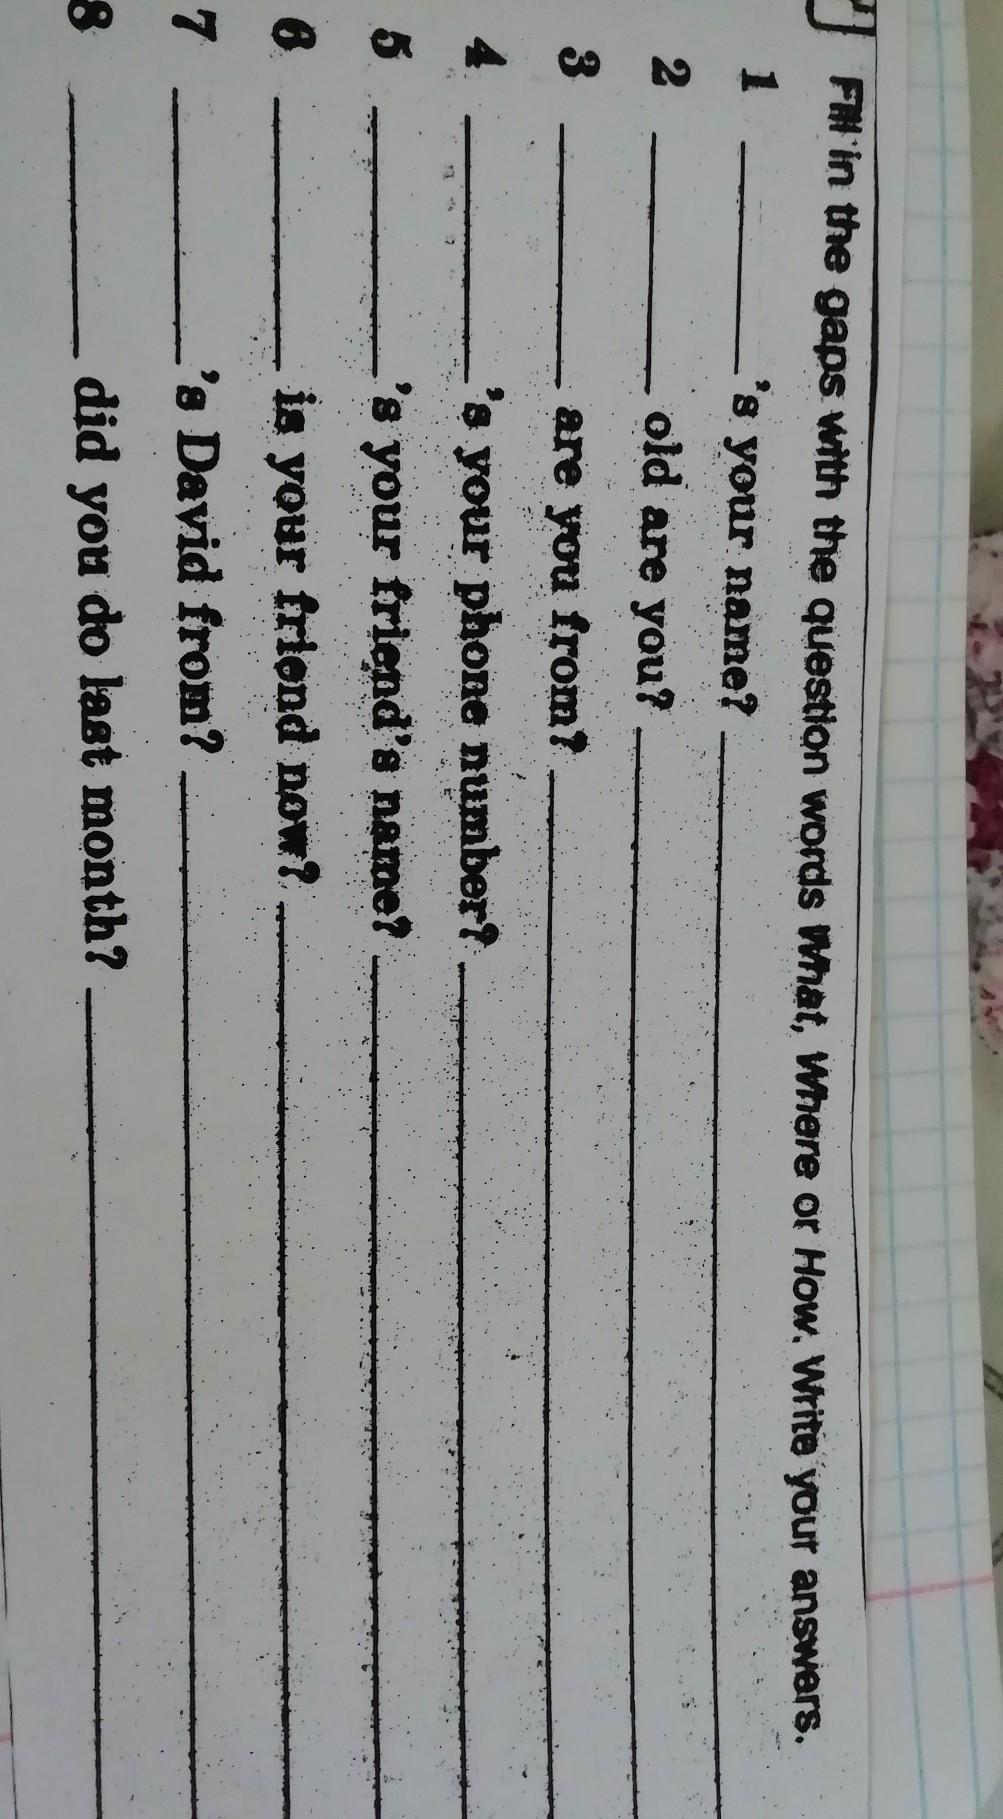 Fill in the gaps with the question words What, Where or How. Write your answers.
1 ________'s your name? ________
2 ________ old are you? ________
3 ________ are you from? ________
4 ________'s your phone number? ________
5 ________'s your friend's name? ________
6 ________ is your friend now? ________
7 ________'s David from? ________
8 ________ did you do last month? ________